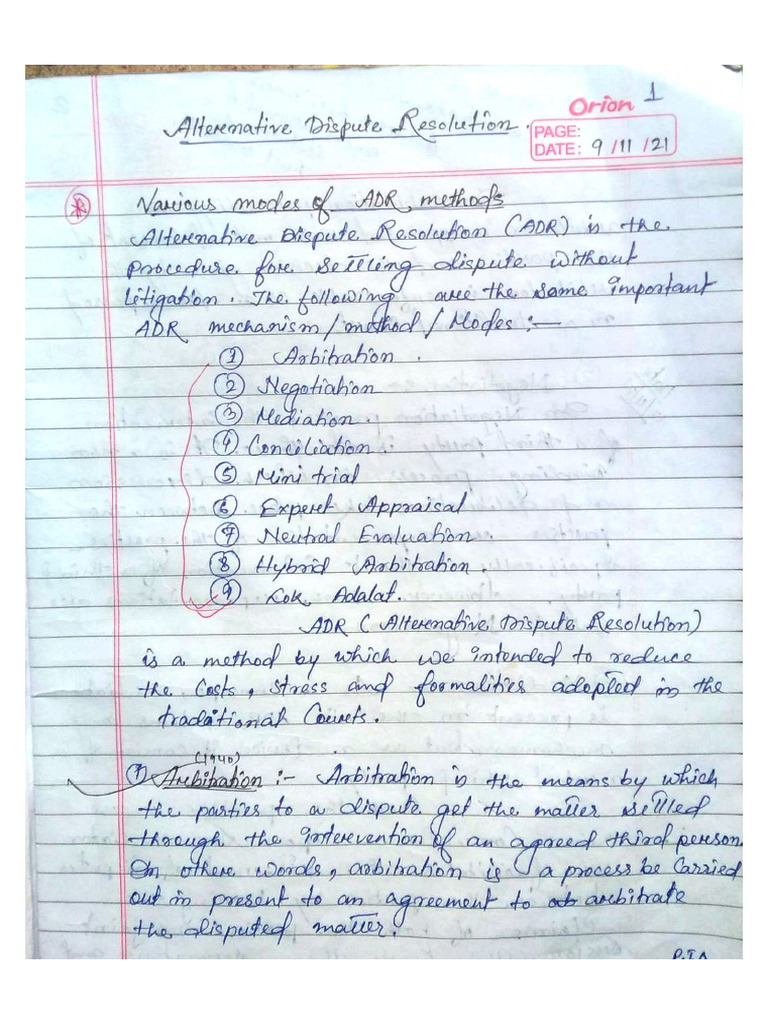 Orion 1
Alternative Dispute Resolution.
PAGE:
DATE: 9/11/21
Various modes of ADR methods
Alternative Dispute Resolution (ADR) is the
procedure for settling dispute without
Litigation. The following are the same important
ADR mechanism/method/Modes :—
① Arbitration.
② Negotiation
③ Mediation.
④ Conciliation.
⑤ Mini trial
⑥ Expert Appraisal
⑦ Neutral Evaluation.
⑧ Hybrid Arbitration.
⑨ Lok Adalat.
ADR (Alternative Dispute Resolution)
is a method by which we intended to reduce
the Costs, stress and formalities adopted in the
traditional Courts.
(1940)
① Arbitration :- Arbitration is the means by which
the parties to a dispute get the matter settled
through the intervention of an agreed third person.
In other words, arbitration is a process be Carried
out in present to an agreement to arbitrate
the disputed matter.